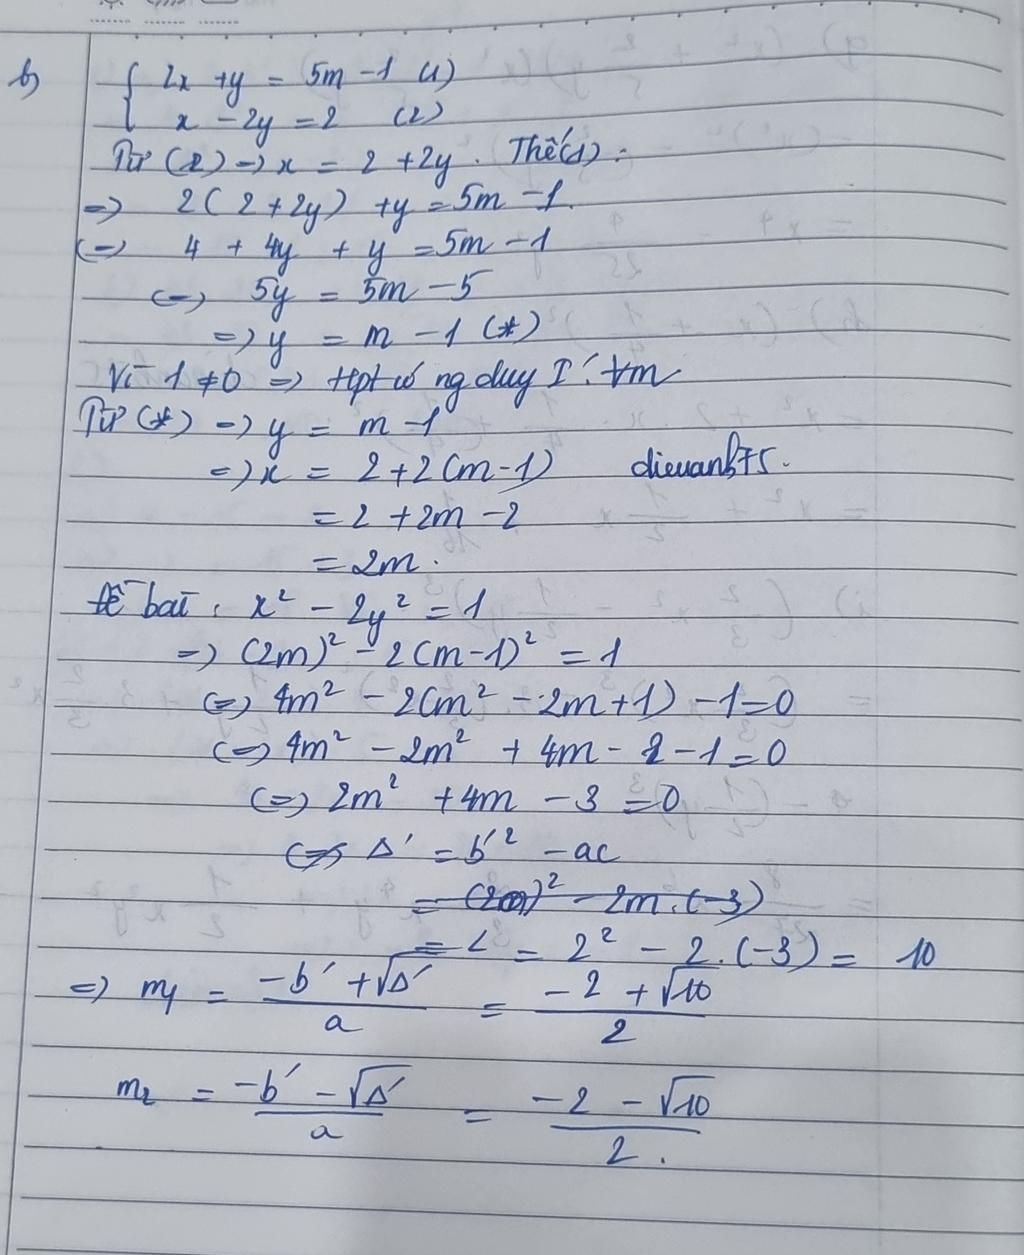 b)
{ 2x + y = 5m - 1 (1)
x - 2y = 2 (2)
Từ (2) => x = 2 + 2y. Thế (1):
=> 2(2 + 2y) + y = 5m - 1.
<=> 4 + 4y + y = 5m - 1
<=> 5y = 5m - 5
=> y = m - 1 (*)
Vì 1 ≠ 0 => Hpt có ng duy I ∀m
Từ (*) => y = m - 1
=> x = 2 + 2(m - 1) dieuanh75.
= 2 + 2m - 2
= 2m.
Đề bài: x² - 2y² = 1
=> (2m)² - 2(m - 1)² = 1
<=> 4m² - 2(m² - 2m + 1) - 1 = 0
<=> 4m² - 2m² + 4m - 2 - 1 = 0
<=> 2m² + 4m - 3 = 0
Δ' = b'² - ac
= (2m)² - 2m.(-3)
= 2² - 2.(-3) = 10
=> m₁ = (-b' + √Δ')/a = (-2 + √10)/2
m₂ = (-b' - √Δ')/a = (-2 - √10)/2.